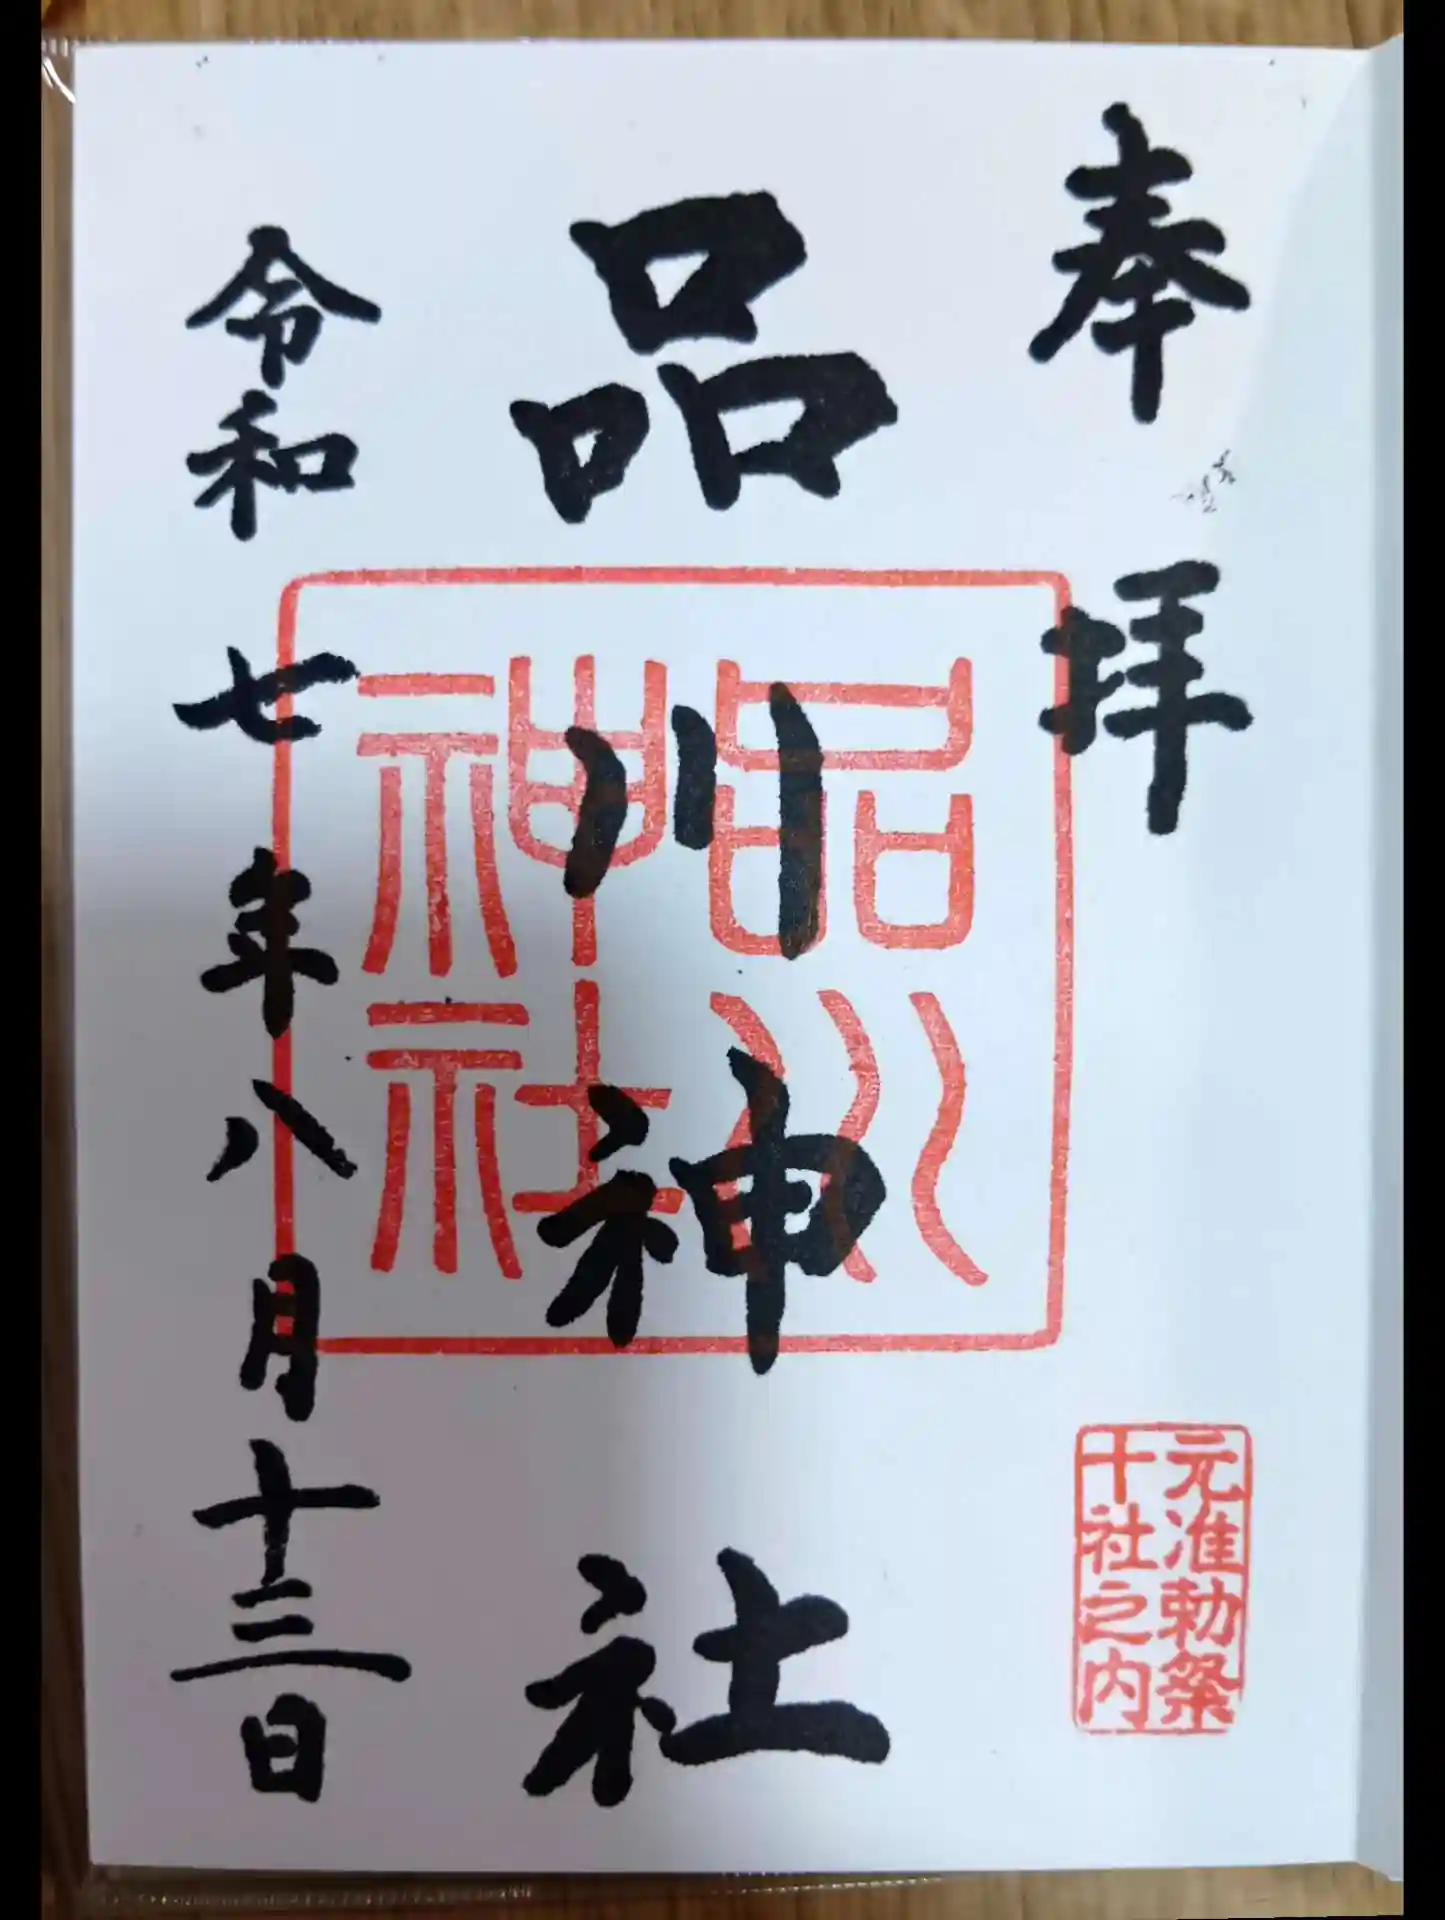 奉拝
元准勅祭
十社之内
品川神社
品川
神社
令和七年八月十三日